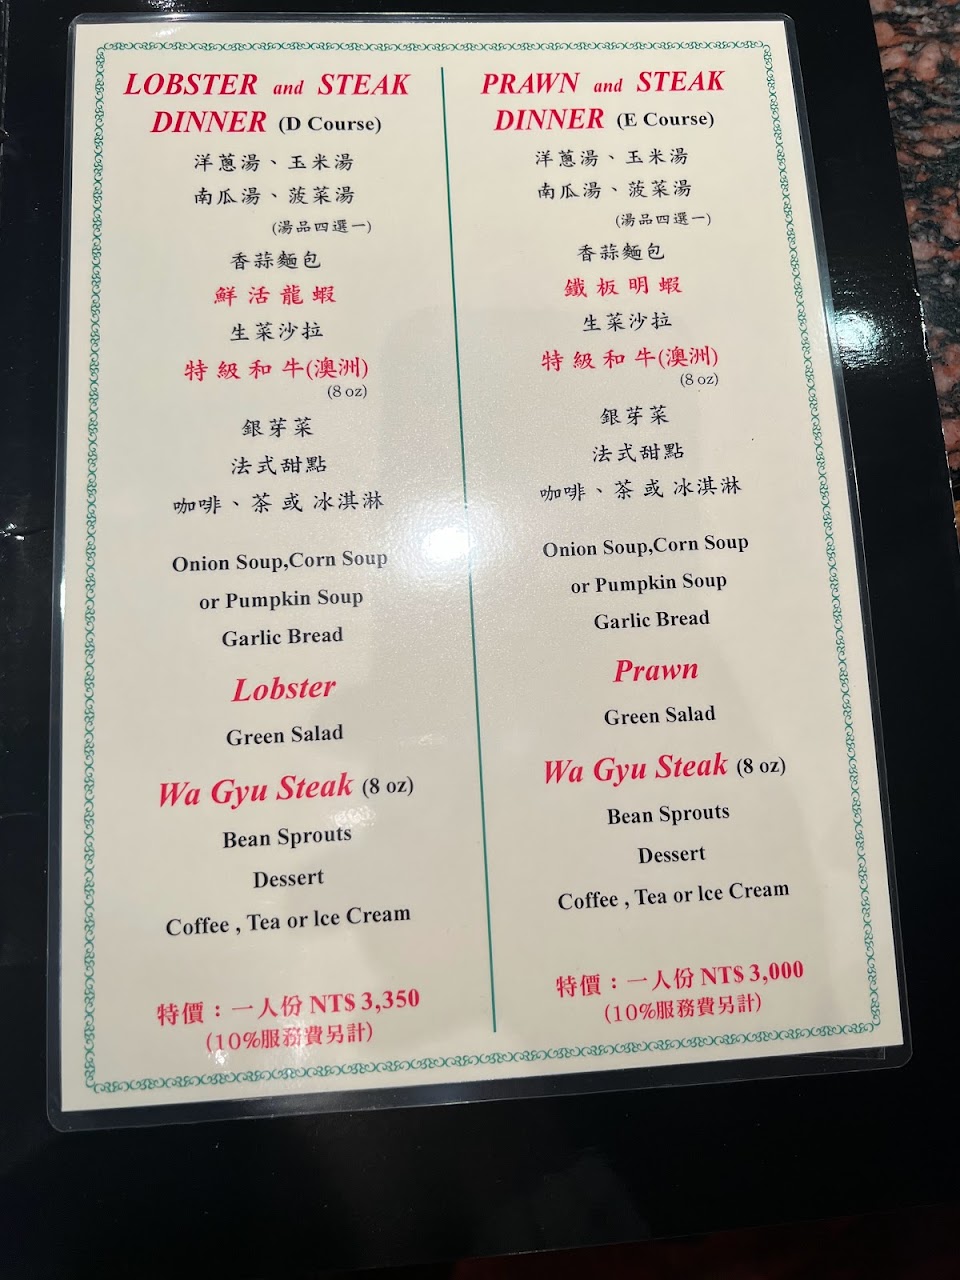 LOBSTER and STEAK
DINNER (D Course)
洋蔥湯、玉米湯
南瓜湯、菠菜湯
(湯品四選一)
香蒜麵包
鮮活龍蝦
生菜沙拉
特級和牛(澳洲)
(8 oz)
銀芽菜
法式甜點
咖啡、茶 或 冰淇淋
Onion Soup,Corn Soup
or Pumpkin Soup
Garlic Bread
Lobster
Green Salad
Wa Gyu Steak (8 oz)
Bean Sprouts
Dessert
Coffee , Tea or lce Cream
特價：一人份 NT$ 3,350
(10%服務費另計)
PRAWN and STEAK
DINNER (E Course)
洋蔥湯、玉米湯
南瓜湯、菠菜湯
(湯品四選一)
香蒜麵包
鐵板明蝦
生菜沙拉
特級和牛(澳洲)
(8 oz)
銀芽菜
法式甜點
咖啡、茶 或 冰淇淋
Onion Soup,Corn Soup
or Pumpkin Soup
Garlic Bread
Prawn
Green Salad
Wa Gyu Steak (8 oz)
Bean Sprouts
Dessert
Coffee , Tea or lce Cream
特價：一人份 NT$ 3,000
(10%服務費另計)